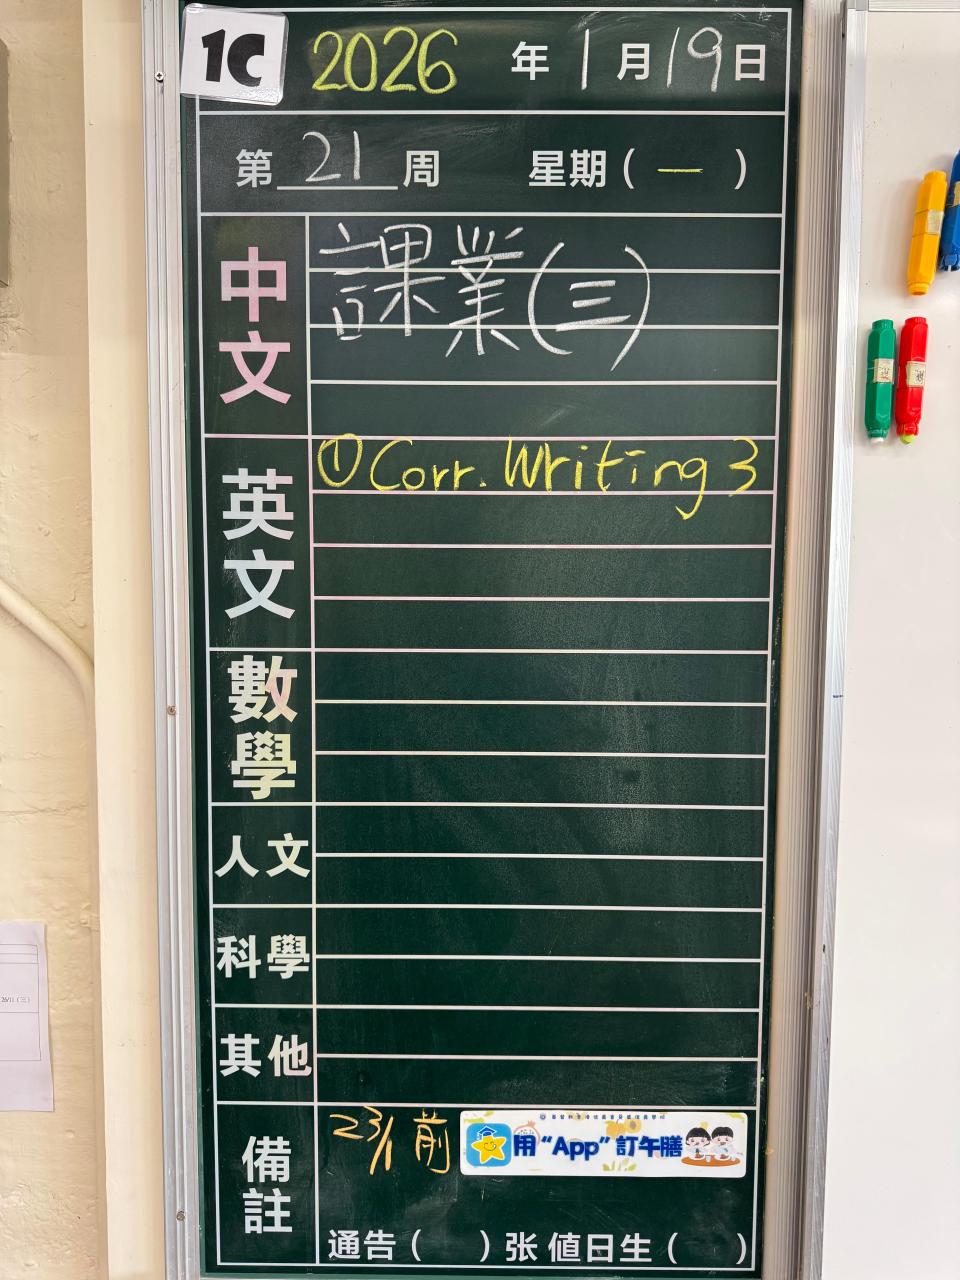 1C 2026 年 1 月 19 日
第 21 周 星期 ( 一 )
中文
課業(三)
英文
① Corr. Writing 3
數學
人文
科學
其他
備註
23/1 前
用 “App” 訂午膳
通告 ( ) 张 值日生 ( )
26/11 (三)